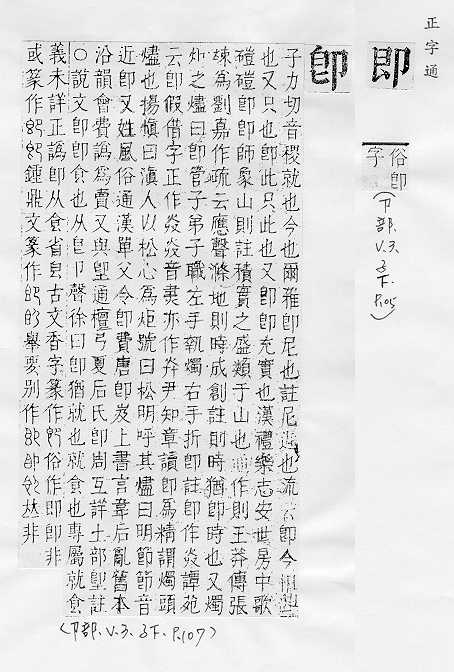 正字通
即
俗卽字
(卩部.V.3.子下.P.105)
卽
子力切音稷就也今也爾雅卽尼也註尼近也疏云卽今相近
也又只也卽此只此也又卽卽充實也漢禮樂志安世房中歌
磑磑卽卽師象山則註積實之盛類于山也通作則王莽傳張
竦爲劉嘉作疏云應聲滌地則時成創註則時猶卽時也又燭
之燼曰卽管子弟子職左手執燭右手折卽註卽作譚苑
云卽假借字正作音夷亦作尹知章讀卽爲精謂燭頭
燼也揚愼曰滇人以松心爲炬號曰松明呼其燼曰明節節音
近卽又姓風俗通漢單父令卽費唐卽岌上書言韋后亂舊本
沿韻會費譌爲賣又與堲通檀弓夏后氏卽周互詳土部堲註
〇說文卽卽食也从皀卪聲徐曰卽猶就也就食也專屬就食
義未詳正譌卽从食省皀古文香字篆作俗作即卽非
或篆作鍾鼎文篆作的舉要別作非
(卩部.V.3.子下.P.107)